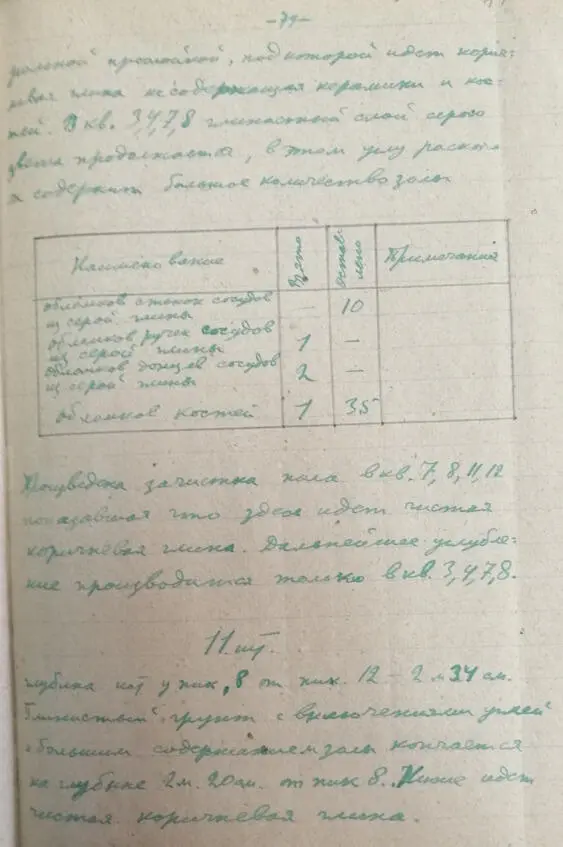 -79-
рольной прослойкой, под которой идет корич-
невая глина не содержащая керамики и кос-
тей. В кв. 3,4,7,8 глинистый слой серого
цвета продолжается, в этом углу раско-
а содержит большое количество золы
Наименование Взято Остав-лено Примечание
обломков стенок сосудов
из серой глины — 10
обломков ручек сосудов
из серой глины 1 —
обломков донцев сосудов
из серой глины 2 —
обломков костей 1 35
Произведена зачистка пола в кв. 7, 8, 11, 12
показавшая что здесь идет чистая
коричневая глина. Дальнейшее углубле-
ние производится только в кв. 3,4,7,8.
11 шт.
глубина шт у пик. 8 от пик. 12 - 2 м 34 см.
Глинистый грунт с включениями углей
с большим содержанием золы кончается
на глубине 2 м. 20 см. от пик 8. Ниже идет
чистая коричневая глина.